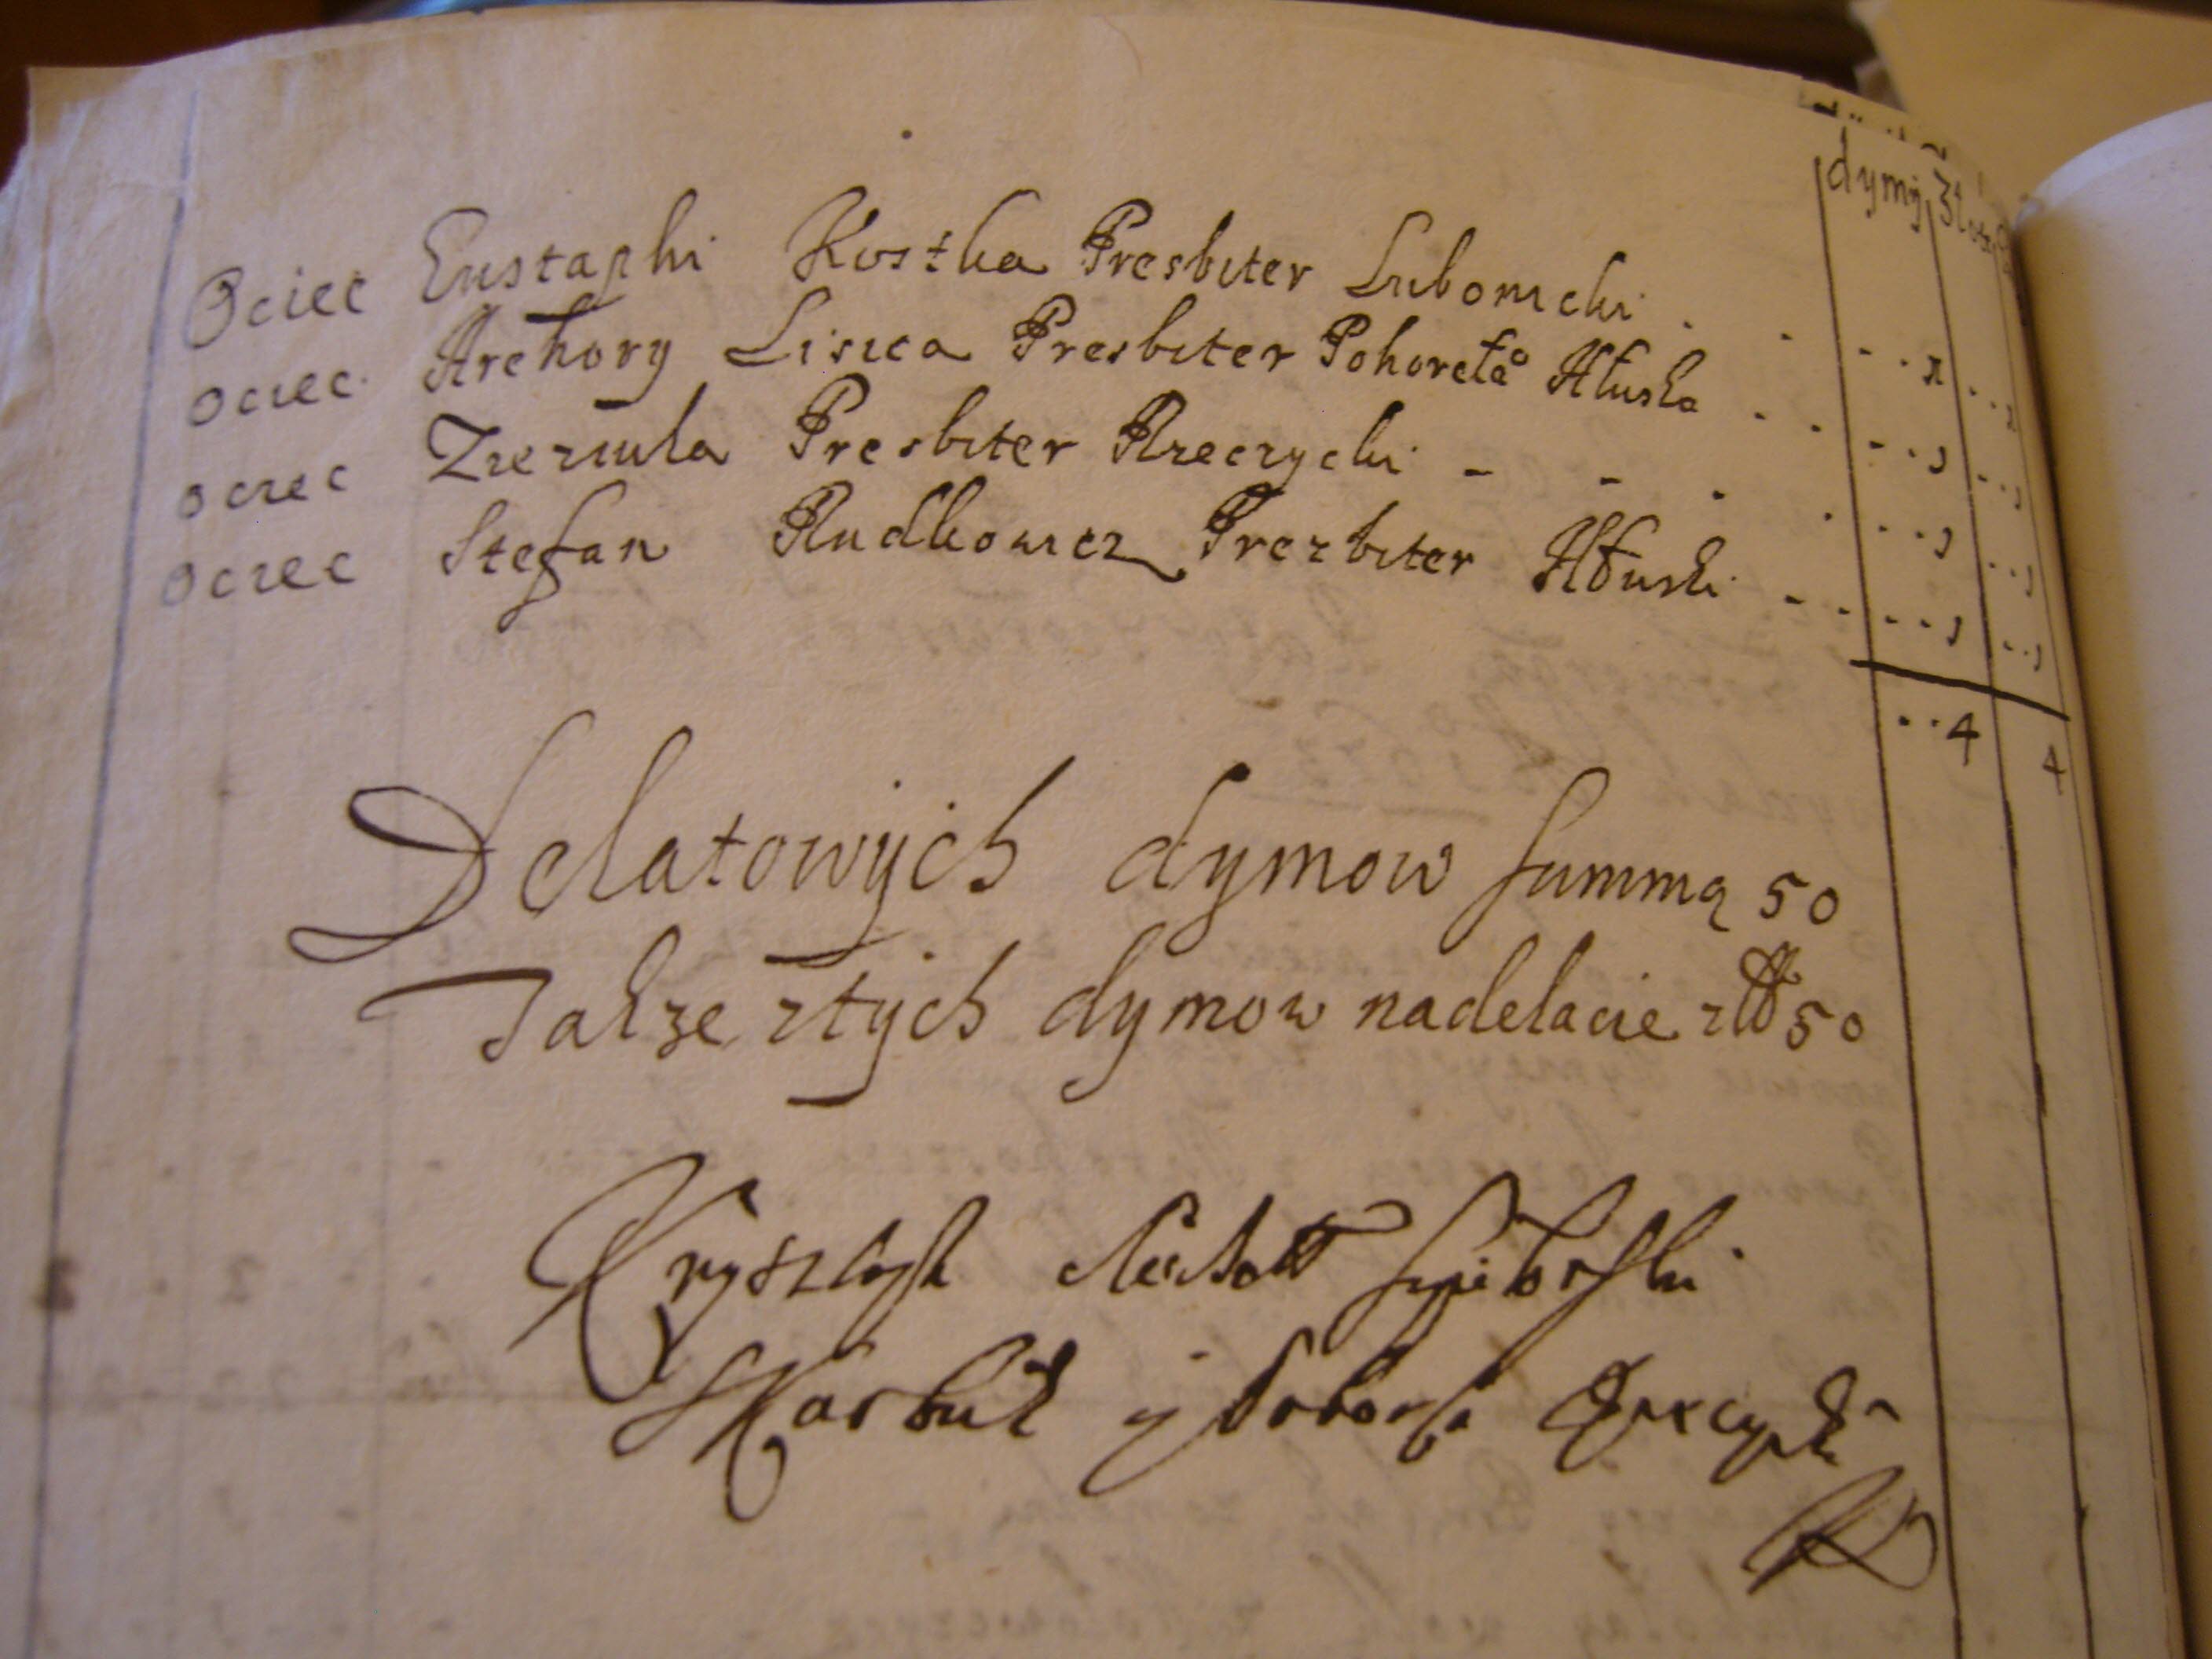 dymÿ Złote
Ociec Eustaphi Kostka Presbiter Lubonicki . . . . 1 . . 1
Ociec Hrehory Lisica Presbiter Pohoreła Hłuska . . - . . 1 - . . 1
Ociec Zieziula Presbiter Rzeczycki - - - . . . . 1 . . 1
Ociec Stefan Rudkowicz Prezbiter Hłuski - - - - . 1 . . 1
. . 4 4
Delatowÿch dymow summą 50
Takze ztÿch dymow nadelacie zł 50
Krysztoph
Skarbnik ÿ Poborca Rzeczycki